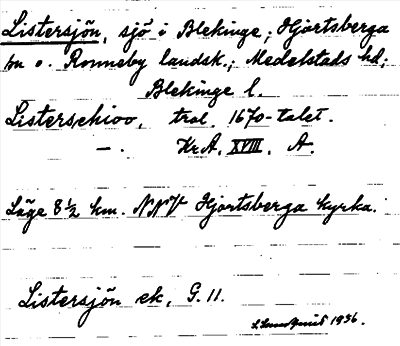 Listersjön, sjö i Blekinge; Hjortsberga
sn o. Ronneby landsk.; Medelstads hd;
Blekinge l.
Listerschioo, trol. 1670-talet.
—. Kr.A. XVIII. A.
Läge 8 ½ km. NNV Hjortsberga kyrka.
Listersjön ek, G. 11.
1936.